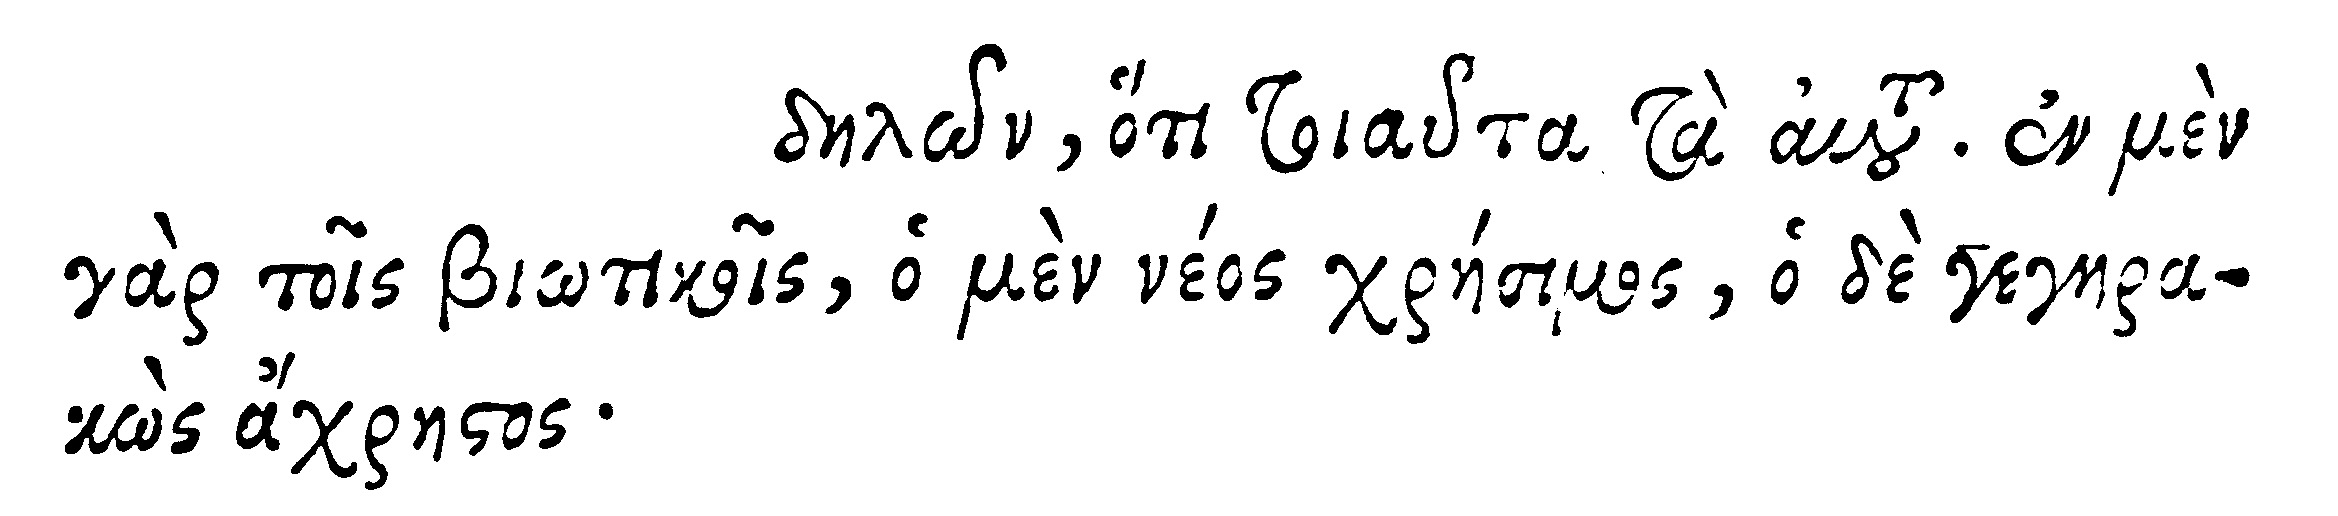 δηλῶν, ὅτι τοιαῦτα τὰ . ἐν μὲν
γὰρ τοῖς βιωτικοῖς, ὁ μὲν νέος χρήσιμος, ὁ δὲ γεγηρα-
κὼς ἄχρηστος·